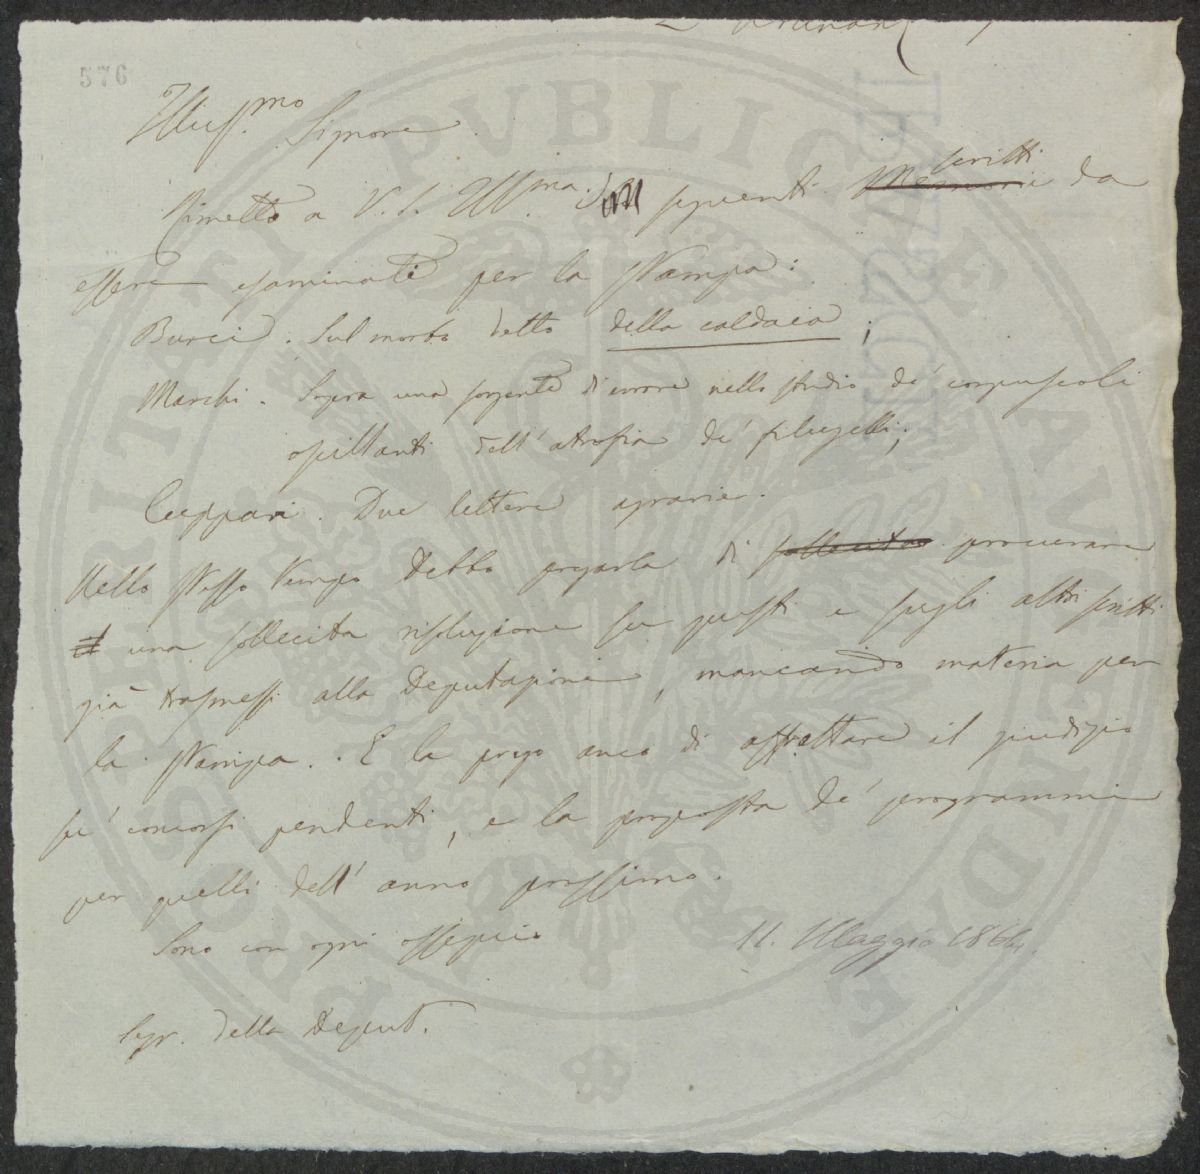 576
Illuss.mo Signore
Rimetto a V. S. Ill.ma i seguenti Memorie scritti da
essere esaminati per la stampa:
Burci. Sul morbo detto della caldaia;
Marchi. Sopra una sorgente di errore nello studio de' corpuscoli
oscillanti dell'atrofia de' filugelli;
Cuppari. Due lettere agrarie.
Nello stesso tempo debbo pregarla di sollecitare procurare
una sollecita risoluzione su questi e sugli altri scritti
già trasmessi alla Deputazione, mancando materia per
la stampa. E la prego anco di affrettare il giudizio
su' concorsi pendenti, e la proposta de' programmi
per quelli dell'anno prossimo.
Sono con ogni ossequio
11. Maggio 1864.
Segr. della Deput.
PROSPERITATI PVBLICAE AVGENDAE